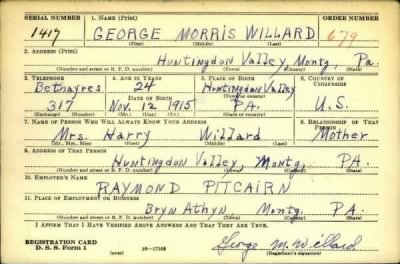 SERIAL NUMBER 1. NAME (Print) ORDER NUMBER
1417 GEORGE MORRIS WILLARD 679
(First) (Middle) (Last)
2. ADDRESS (Print)
Huntingdon Valley, Montg, Pa.
(Number and street or R. F. D. number) (Town) (County) (State)
3. TELEPHONE 4. AGE IN YEARS 5. PLACE OF BIRTH 6. COUNTRY OF CITIZENSHIP
Bethayres 24 Huntingdon Valley
DATE OF BIRTH (Town or county)
317 Nov. 12 1915 PA. U.S.
(Mo.) (Day) (Yr.) (State or country)
7. NAME OF PERSON WHO WILL ALWAYS KNOW YOUR ADDRESS 8. RELATIONSHIP OF THAT PERSON
Mrs. Harry Willard Mother
(Mr., Mrs., Miss) (First) (Middle) (Last)
9. ADDRESS OF THAT PERSON
Huntingdon Valley, Montg, PA.
(Number and street or R. F. D. number) (Town) (County) (State)
10. EMPLOYER'S NAME
RAYMOND PITCAIRN
11. PLACE OF EMPLOYMENT OR BUSINESS
Bryn Athyn Montg. PA.
(Number and street or R. F. D. number) (Town) (County) (State)
I AFFIRM THAT I HAVE VERIFIED ABOVE ANSWERS AND THAT THEY ARE TRUE.
REGISTRATION CARD
D. S. S. Form 1 (over) George M. Willard
(Registrant's signature)